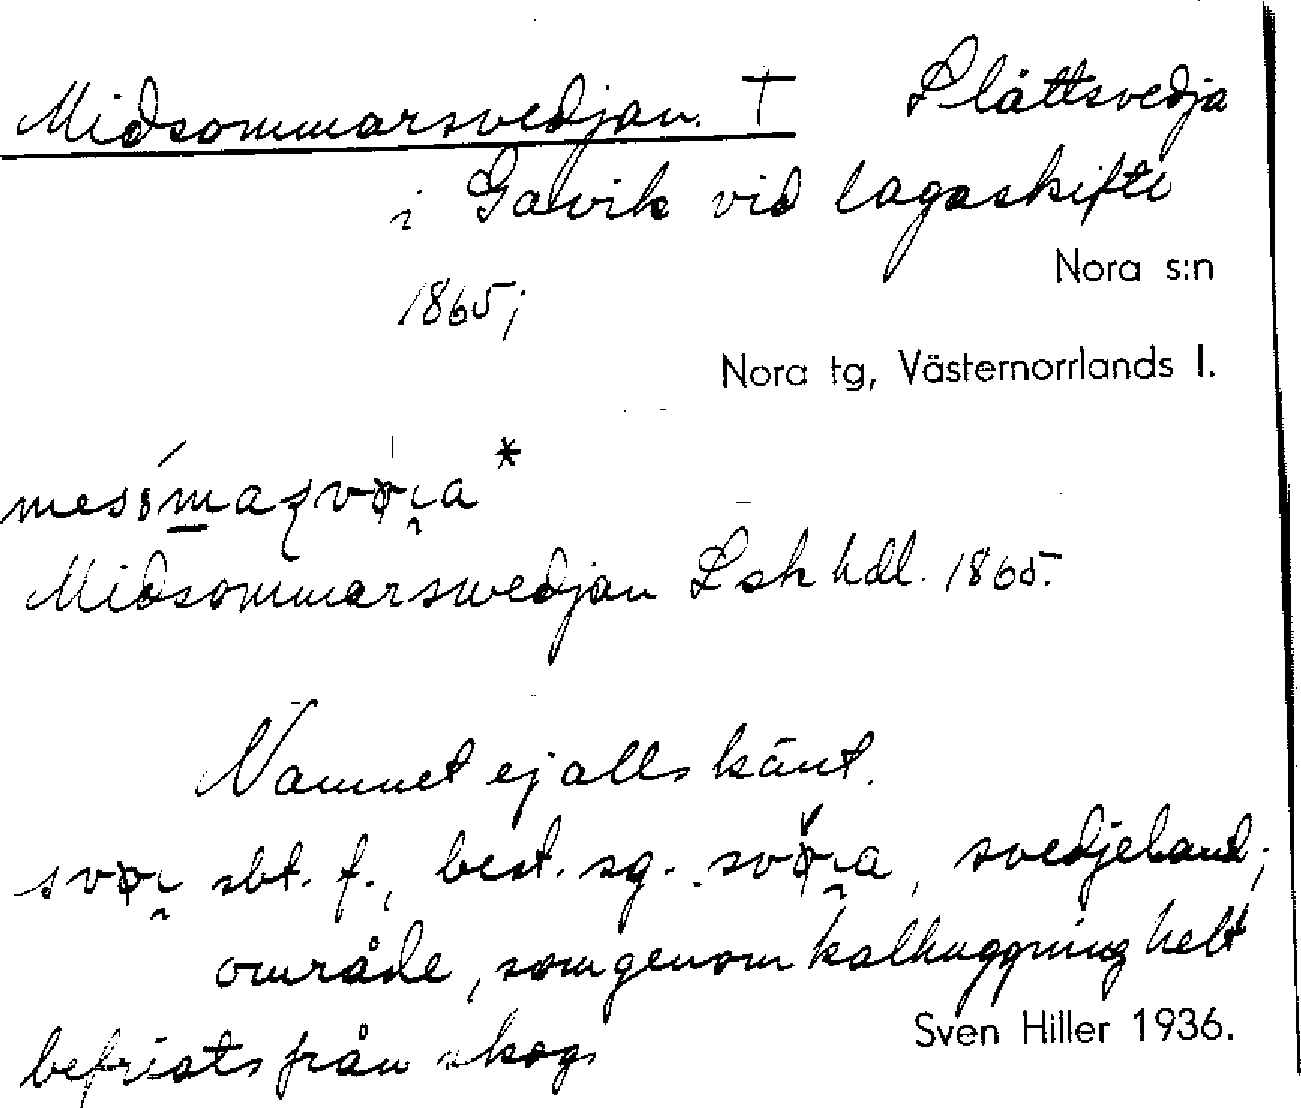 Midsommarsvedjan. † Slåttsvedja
i Gavik vid lagaskifte
Nora s:n
1865;
Nora tg, Västernorrlands l.
Midsommarswedjan Lsk hdl. 1865.
Namnet ej alls känt.
sbt. f., best. sg. svedjeland;
område, som genom kalhuggning helt
befriats från skog.
Sven Hiller 1936.